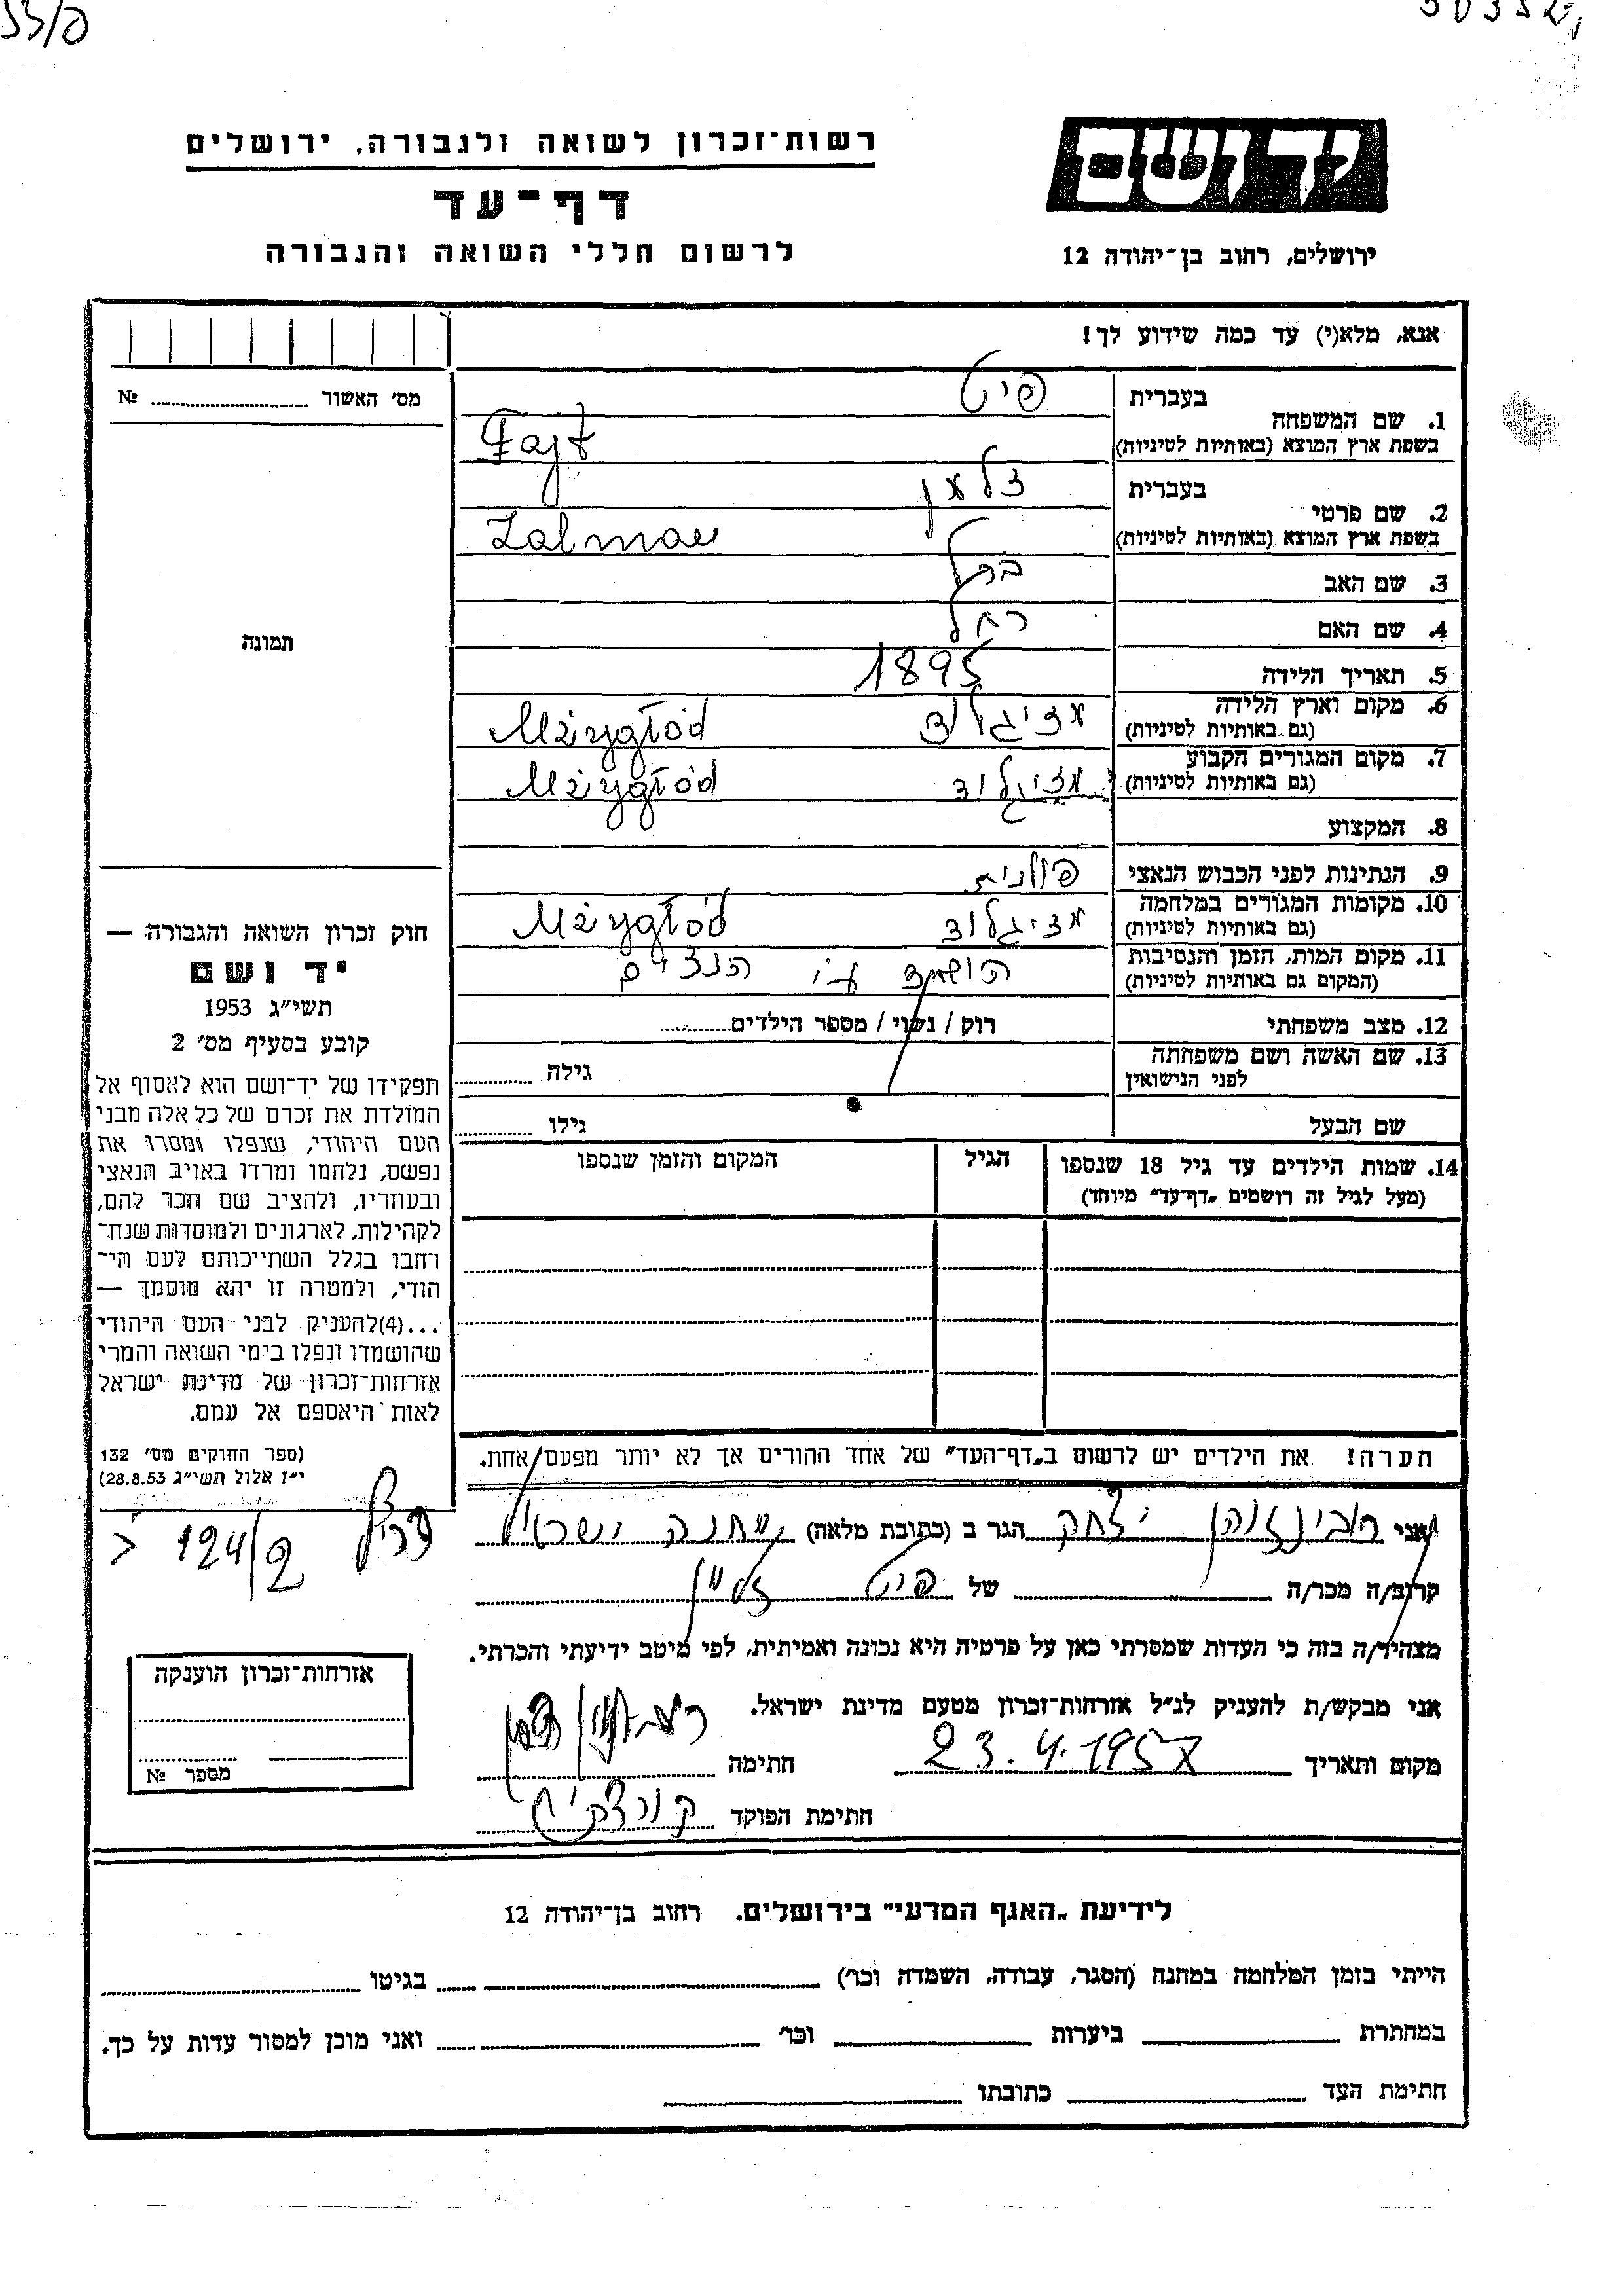 רשות־זכרון לשואה ולגבורה, ירושלים
דף־עד
לרשום חללי השואה והגבורה
יד ושם
ירושלים, רחוב בן־יהודה 12
אנא, מלא(י) עד כמה שידוע לך!
מס׳ האשור № 
תמונה
1. שם המשפחה
בעברית פיט
בשפת ארץ המוצא (באותיות לטיניות) Fajt
2. שם פרטי
בעברית זלמן
בשפת ארץ המוצא (באותיות לטיניות) Zalman
3. שם האב ברל
4. שם האם רחל
5. תאריך הלידה 1895
6. מקום וארץ הלידה
(גם באותיות לטיניות) מזיגלוד Mżygłód
7. מקום המגורים הקבוע
(גם באותיות לטיניות) מזיגלוד Mżygłód
8. המקצוע
9. הנתינות לפני הכבוש הנאצי פולנית
10. מקומות המגורים במלחמה
(גם באותיות לטיניות) מזיגלוד Mżygłód
11. מקום המות, הזמן והנסיבות
(המקום גם באותיות לטיניות) הושמד ע״י הנצים
12. מצב משפחתי רוק / נשוי / מספר הילדים
13. שם האשה ושם משפחתה
לפני הנישואין גילה
שם הבעל גילו
14. שמות הילדים עד גיל 18 שנספו
(מעל לגיל זה רושמים „דף־עד״ מיוחד)
הגיל
המקום והזמן שנספו
חוק זכרון השואה והגבורה —
יד ושם
תשי״ג 1953
קובע בסעיף מס׳ 2
תפקידו של יד־ושם הוא לאסוף אל
המולדת את זכרם של כל אלה מבני
העם היהודי, שנפלו ומסרו את
נפשם, נלחמו ומרדו באויב הנאצי
ובעוזריו, ולהציב שם וזכר להם,
לקהילות, לארגונים ולמוסדות שנח־
רחבו בגלל השתייכותם לעם הי־
הודי, ולמטרה זו יהא מוסמך —
...(4)להעניק לבני העם היהודי
שהושמדו ונפלו בימי השואה והמרי
אזרחות־זכרון של מדינת ישראל
לאות היאספם אל עמם.
(ספר החוקים מס׳ 132
י״ז אלול תשי״ג 28.8.53)
הערה! את הילדים יש לרשום ב„דף־העד״ של אחד ההורים אך לא יותר מפעם אחת.
אני רובינזוהן יצחק הגר ב (כתובת מלאה) מחנה ישראל
124/2
קרוב/ה מכר/ה של פיט זלמן
מצהיר/ה בזה כי העדות שמסרתי כאן על פרטיה היא נכונה ואמיתית, לפי מיטב ידיעתי והכרתי.
אני מבקש/ת להעניק לנ״ל אזרחות־זכרון מטעם מדינת ישראל.
מקום ותאריך 23.4.1957 חתימה
חתימת הפוקד
אזרחות־זכרון הוענקה
מספר №
לידיעת „האגף המדעי״ בירושלים. רחוב בן־יהודה 12
הייתי בזמן המלחמה במחנה (הסגר, עבודה, השמדה וכו׳) בגיטו
במחתרת ביערות וכו׳ ואני מוכן למסור עדות על כך.
חתימת העד כתובתו